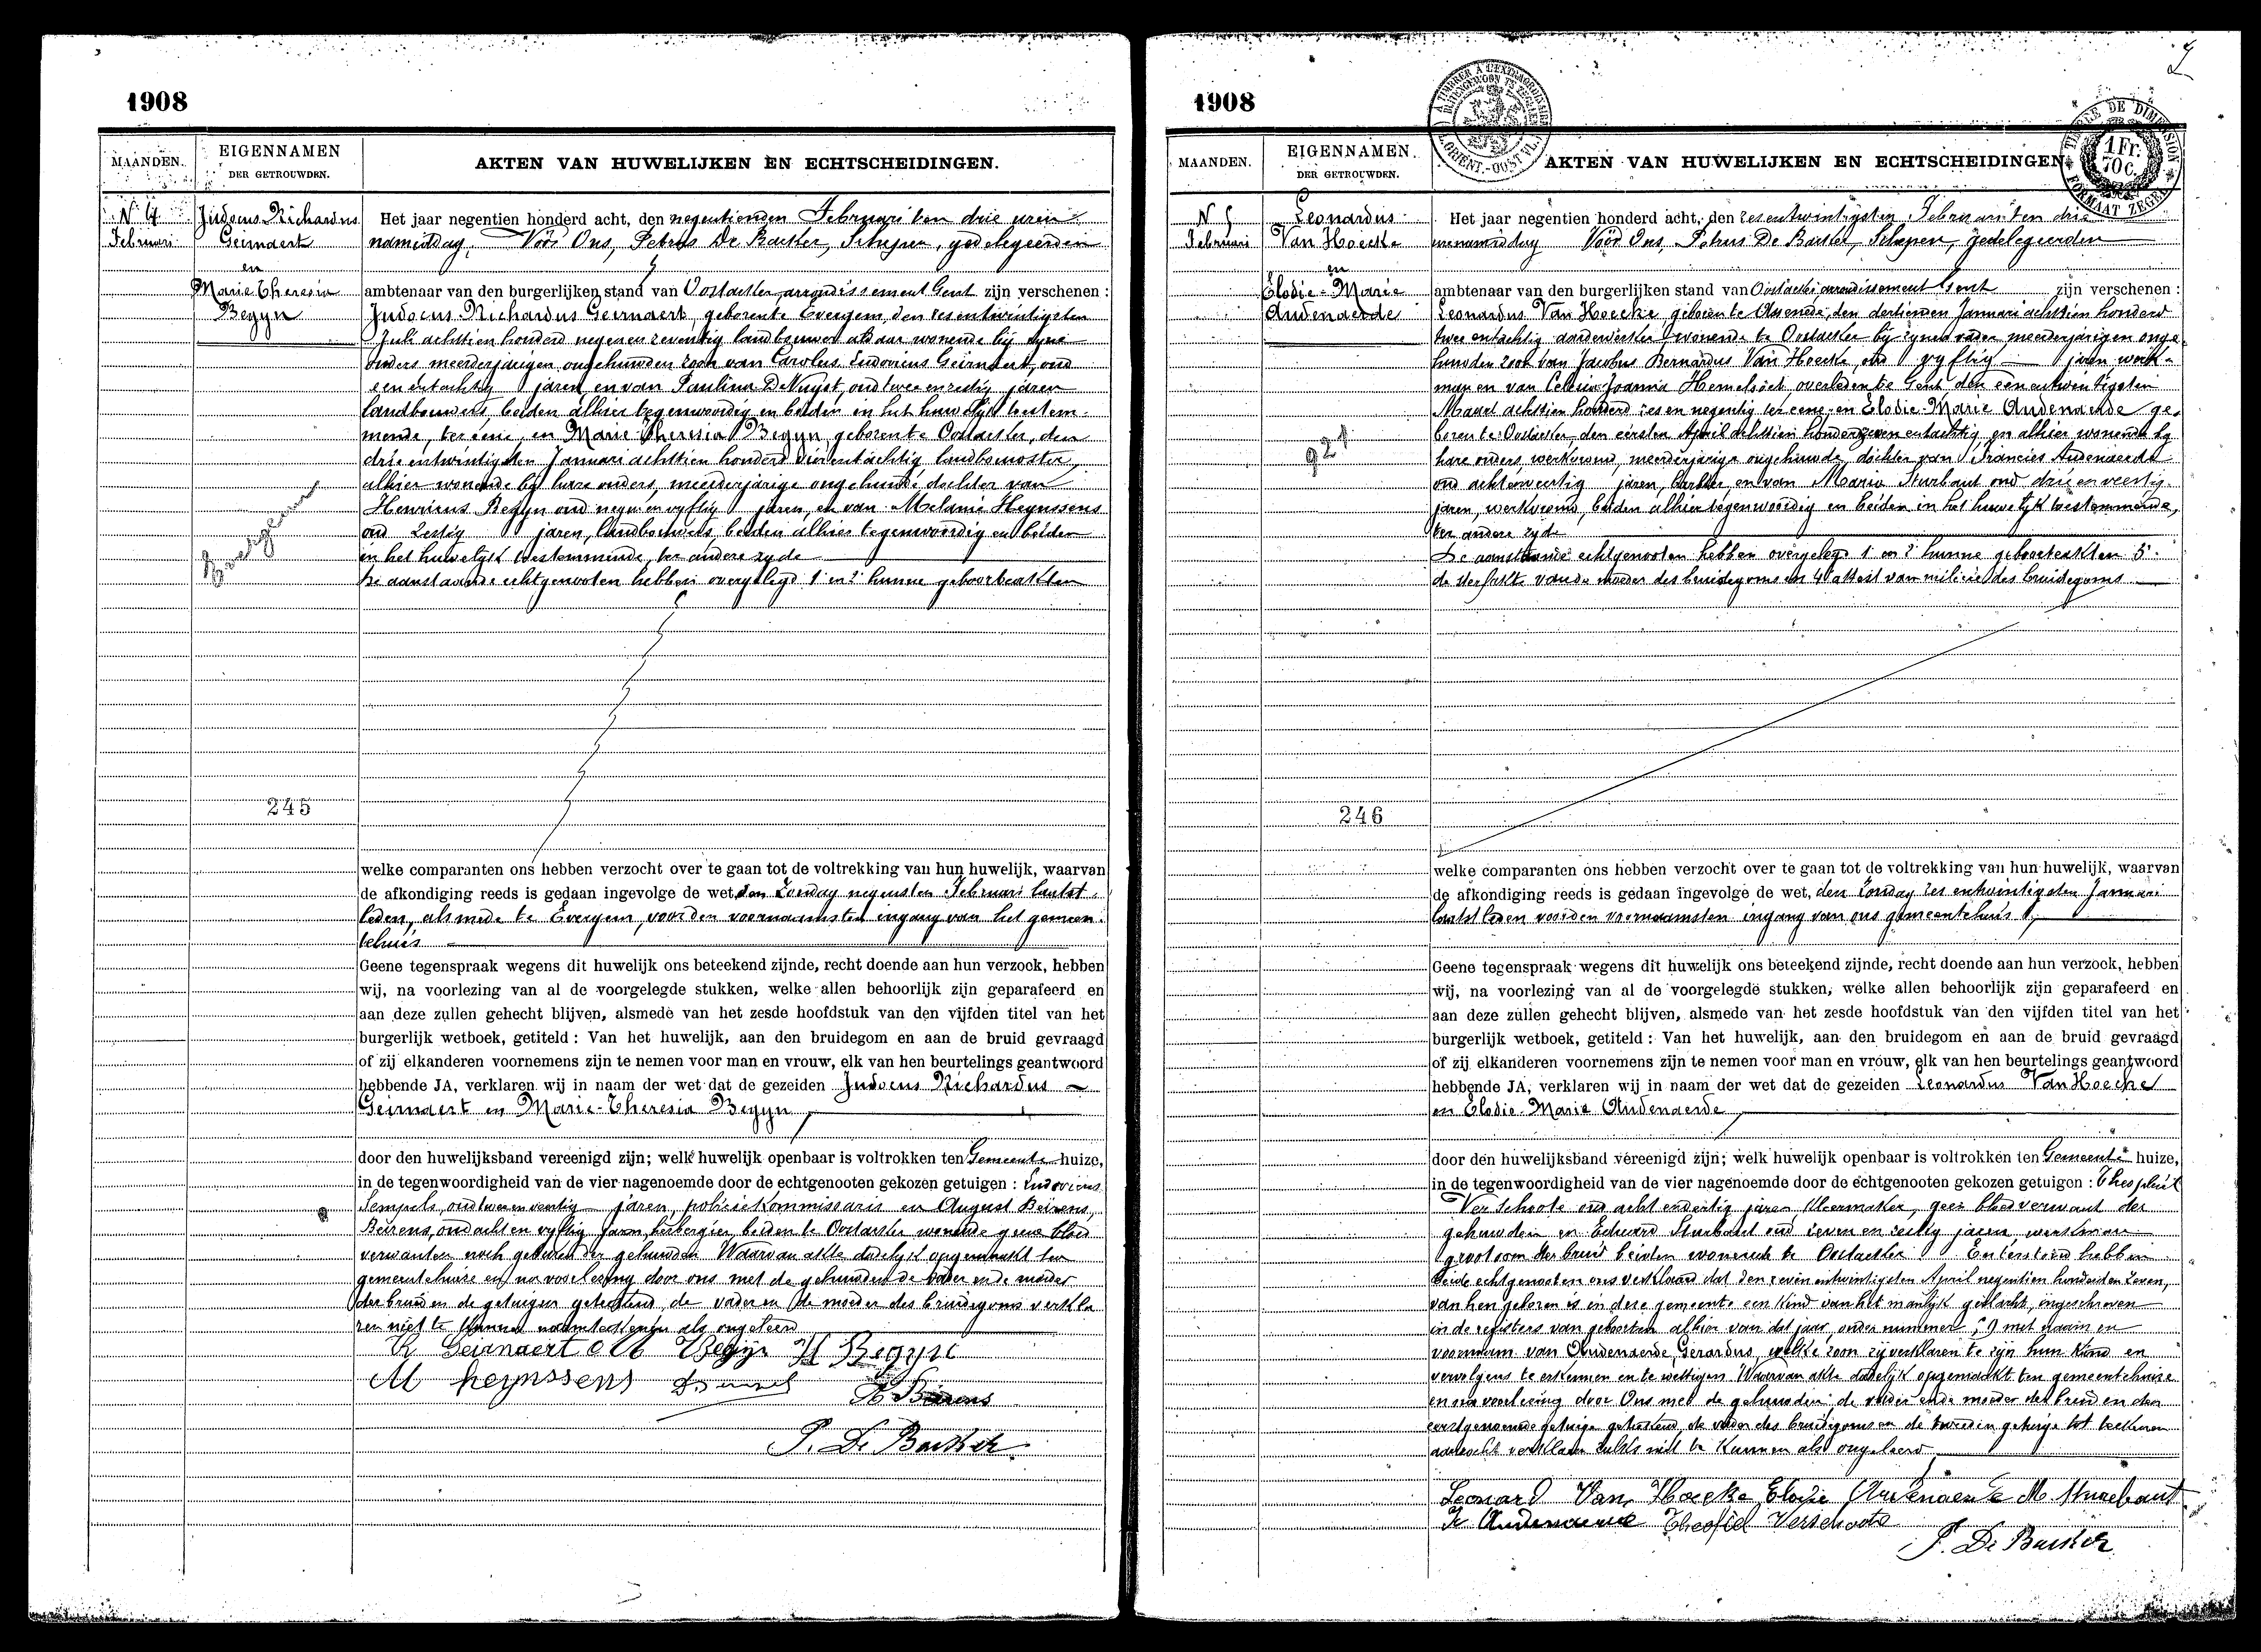 1908
MAANDEN.
EIGENNAMEN
DER GETROUWDEN.
AKTEN VAN HUWELIJKEN EN ECHTSCHEIDINGEN.
N 4
Februari
Judocus Richardus
Geirnaert
en
Marie Theresia
Begyn
245
Het jaar negentien honderd acht, den negentienden Februari ten drie uren
namiddag, Vóór Ons, Petrus De Backer, Schepen, gedelegeerden
ambtenaar van den burgerlijken stand van Oostacker, arrondissement Gent zijn verschenen :
Judocus Richardus Geirnaert, geboren te Evergem, den zesentwintigsten
Juli achttien honderd negen en zeventig landbouwer aldaar wonende bij zyne
ouders meerderjarigen ongehuwden zoon van Carolus Ludovicus Geirnaert, oud
een entachtig jaren, en van Paulina De Nuyst, oud twee en zestig jaren
landbouwers, beiden alhier tegenwoordig en beiden in het huwelijk toestem-
mende, ter eene, en Marie Theresia Begyn, geboren te Oostacker, den
drie entwintigsten Januari achttien honderd vierentachtig
alhier wonende bij hare ouders, meerderjarige ongehuwde dochter van
Henricus Begyn oud negen en vyftig jaren, en van Melanie Heynssens
oud zestig jaren, landbouwers, beiden alhier tegenwoordig en beiden
in het huwelyk toestemmende, ter andere zyde
De aanstaande echtgenooten hebben overgelegd 1 en 2 hunne geboorteakten
welke comparanten ons hebben verzocht over te gaan tot de voltrekking van hun huwelijk, waarvan
de afkondiging reeds is gedaan ingevolge de wet, den Zondag negensten Februari laatst-
leden, alsmede te Evergem, voor den voornaamsten ingang van het gemeen-
tehuis
Geene tegenspraak wegens dit huwelijk ons beteekend zijnde, recht doende aan hun verzoek, hebben
wij, na voorlezing van al de voorgelegde stukken, welke allen behoorlijk zijn geparafeerd en
aan deze zullen gehecht blijven, alsmede van het zesde hoofdstuk van den vijfden titel van het
burgerlijk wetboek, getiteld : Van het huwelijk, aan den bruidegom en aan de bruid gevraagd
of zij elkanderen voornemens zijn te nemen voor man en vrouw, elk van hen beurtelings geantwoord
hebbende JA, verklaren wij in naam der wet dat de gezeiden Judocus Richardus
Geirnaert en Marie-Theresia Begyn,
door den huwelijksband vereenigd zijn; welk huwelijk openbaar is voltrokken ten Gemeente huize,
in de tegenwoordigheid van de vier nagenoemde door de echtgenooten gekozen getuigen : Ludovicus
Sempels, oud twee en veertig jaren, politiekommissaris en August Beirens,
Beirens, oud acht en vyftig jaren, herbergier, beiden te Oostacker wonende geene bloed
verwanten noch geburen der gehuwden Waarvan akte dadelyk opgemaakt ten
gemeentehuize en na voorlezing door ons met de gehuwden de vader en de moeder
der bruid en de getuigen geteekend, de vader en de moeder des bruidegoms verkla
ren niet te kunnen naamteekenen als ongeleerd
R Geirnaert M t Begyn H Begyn
M heynssens
A Beirens
P. De Backer
1908
MAANDEN.
EIGENNAMEN
DER GETROUWDEN.
AKTEN VAN HUWELIJKEN EN ECHTSCHEIDINGEN.
1 Fr.
70 C.
N 5
Februari
Leonardus
Van Hoecke
en
Elodie-Marie
Audenaerde
921
246
Het jaar negentien honderd acht, den zesentwintigsten Februari ten drie
uren namiddag Vóór Ons, Petrus De Backer, Schepen, gedelegeerden
ambtenaar van den burgerlijken stand van Oostacker, arrondissement Gent zijn verschenen :
Leonardus Van Hoecke geboren te Assenede, den dertienden Januari achttien honderd
twee entachtig aardewerker wonende te Oostacker bij zynen vader meerderjarigen onge-
huwden zoon van Jacobus Bernardus Van Hoecke, oud vyftig jaren, werk-
man en van Celesia Joanna Hemelsoet, overleden te Gent den een entwintigsten
Maart achttien honderd zes en negentig ter eene; en Elodie-Marie Audenaerde ge-
boren te Oostacker, den eersten April achttien honderd zeven entachtig en alhier wonende by
hare ouders, werkvrouw, meerderjarige ongehuwde dochter van Francies Audenaerde
oud achtenveertig jaren, en van Maria Sturbaut oud drie en veertig
jaren, werkvrouw, beiden alhier tegenwoordig en beiden in het huwelijk toestemmende,
ter andere zyde
De aanstaande echtgenooten hebben overgelegd 1 en 2 hunne geboorteakten 3
de sterfakte van de moeder des bruidegoms en 4 attest van milicie des bruidegoms
welke comparanten ons hebben verzocht over te gaan tot de voltrekking van hun huwelijk, waarvan
de afkondiging reeds is gedaan ingevolge de wet, den Zondag zes entwintigsten Januari
laatstleden voor den voornaamsten ingang van ons gemeentehuis
Geene tegenspraak wegens dit huwelijk ons beteekend zijnde, recht doende aan hun verzoek, hebben
wij, na voorlezing van al de voorgelegde stukken, welke allen behoorlijk zijn geparafeerd en
aan deze zullen gehecht blijven, alsmede van het zesde hoofdstuk van den vijfden titel van het
burgerlijk wetboek, getiteld : Van het huwelijk, aan den bruidegom en aan de bruid gevraagd
of zij elkanderen voornemens zijn te nemen voor man en vrouw, elk van hen beurtelings geantwoord
hebbende JA, verklaren wij in naam der wet dat de gezeiden Leonardus Van Hoecke
en Elodie-Marie Audenaerde,
door den huwelijksband vereenigd zijn; welk huwelijk openbaar is voltrokken ten Gemeente huize,
in de tegenwoordigheid van de vier nagenoemde door de echtgenooten gekozen getuigen : Theophiel
Verschoote oud acht endertig jaren kleermaker, geen bloedverwant der
gehuwden en Eduard Sturbaut oud zeven en zestig jaren, werkman
grootoom der bruid beiden wonende te Oostacker En terstond hebben
beide echtgenooten ons verklaard dat den zeven entwintigsten April negentien honderd en zeven,
van hen geboren is in deze gemeente een kind van het manlijk geslacht, ingeschreven
in de registers van geboorten alhier van dat jaar, onder nummer 59 met naam en
voornaam van Audenaerde Gerardus, welke zoon zij verklaren te zijn hun kind en
vervolgens te erkennen en te wettigen Waarvan akte dadelijk opgemaakt ten gemeentehuize
en na voorlezing door Ons met de gehuwden, de vader en de moeder der bruid en den
eerstgenoemde getuige geteekend, de vader des bruidegoms en de tweeden getuige tot teekenen
aanzocht verklaren zulks niet te kunnen als ongeleerd
Leonard Van Hoecke Elodie Audenaerde M. Sturebaut
Fr Audenaerde Theofiel Verschoote
P. De Backer